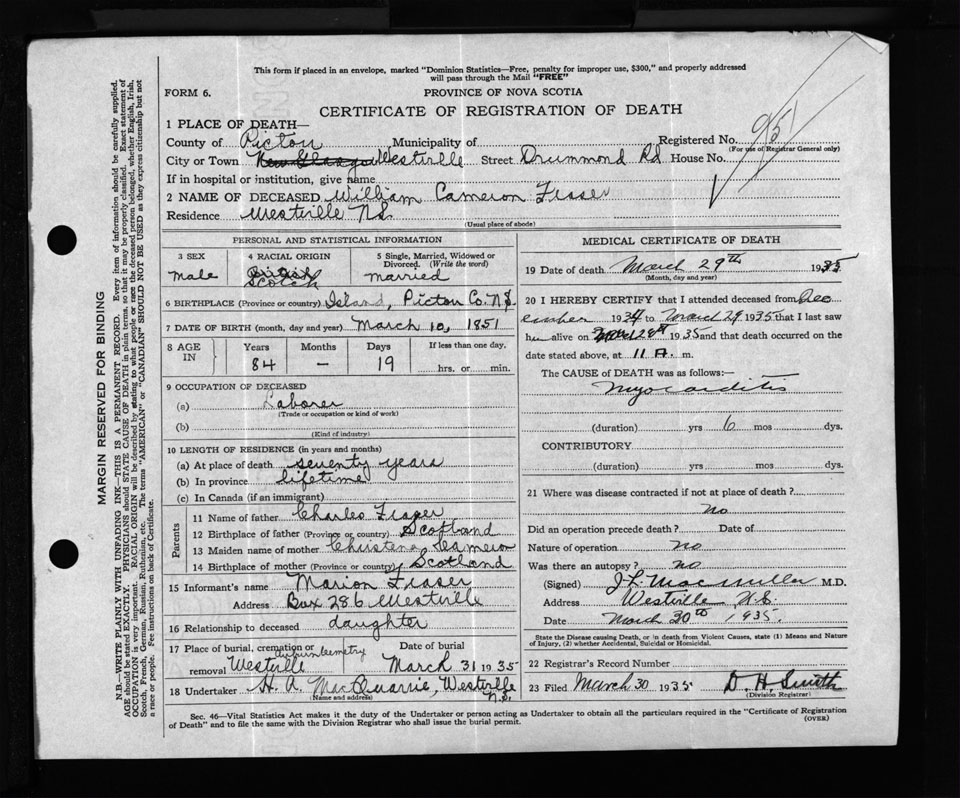 This form if placed in an envelope, marked "Dominion Statistics—Free, penalty for improper use, $300," and properly addressed
will pass through the Mail "FREE"
FORM 6. PROVINCE OF NOVA SCOTIA
CERTIFICATE OF REGISTRATION OF DEATH
1 PLACE OF DEATH—
County of Pictou Municipality of Registered No. 951
(For use of Registrar General only)
City or Town New Glasgow Westville Street Drummond Rd House No.
If in hospital or institution, give name
2 NAME OF DECEASED William Cameron Fraser
Residence Westville N.S.
(Usual place of abode)
PERSONAL AND STATISTICAL INFORMATION
3 SEX 4 RACIAL ORIGIN 5 Single, Married, Widowed or
Divorced. (Write the word)
Male British Scotch Married
6 BIRTHPLACE (Province or country) Island, Pictou Co. N.S.
7 DATE OF BIRTH (month, day and year) March 10, 1851
8 AGE IN Years Months Days If less than one day,
84 — 19 hrs. or min.
9 OCCUPATION OF DECEASED
(a) Laborer
(Trade or occupation or kind of work)
(b)
(Kind of industry)
10 LENGTH OF RESIDENCE (in years and months)
(a) At place of death seventy years
(b) In province lifetime
(c) In Canada (if an immigrant)
Parents
11 Name of father Charles Fraser
12 Birthplace of father (Province or country) Scotland
13 Maiden name of mother Christena Cameron
14 Birthplace of mother (Province or country) Scotland
15 Informant's name Marion Fraser
Address Box 286 Westville
16 Relationship to deceased daughter
17 Place of burial, cremation or Date of burial
removal Westville March 31 1935
18 Undertaker H. A. MacQuarrie, Westville
Name and address N.S.
MEDICAL CERTIFICATE OF DEATH
19 Date of death March 29th 1935
(Month, day and year)
20 I HEREBY CERTIFY that I attended deceased from Dec
ember 1934 to March 29 1935 that I last saw
him alive on Mar 28th 1935 and that death occurred on the
date stated above, at 11 A. m.
The CAUSE of DEATH was as follows:—
Myocarditis
(duration) yrs 6 mos dys.
CONTRIBUTORY
(duration) yrs mos dys.
21 Where was disease contracted if not at place of death ?
No
Did an operation precede death ? Date of
Nature of operation no
Was there an autopsy ? no
(Signed) J. L. MacMillan M.D.
Address Westville N.S.
Date March 30th 1935.
State the Disease causing Death, or in death from Violent Causes, state (1) Means and Nature
of Injury, (2) whether Accidental, Suicidal or Homicidal.
22 Registrar's Record Number
23 Filed March 30 1935 D. H. Smith
(Division Registrar)
Sec. 46—Vital Statistics Act makes it the duty of the Undertaker or person acting as Undertaker to obtain all the particulars required in the "Certificate of Registration
of Death" and to file the same with the Division Registrar who shall issue the burial permit. (OVER)
MARGIN RESERVED FOR BINDING
N.B.—WRITE PLAINLY WITH UNFADING INK—THIS IS A PERMANENT RECORD. Every item of information should be carefully supplied.
AGE should be stated EXACTLY. PHYSICIANS should STATE CAUSE OF DEATH in plain terms, so that it may be properly classified. Exact statement of
OCCUPATION is very important. RACIAL ORIGIN will be described by stating to what people or race the deceased person belonged, whether English, Irish,
Scotch, French, German, Russian, Ruthenian, etc. The terms "AMERICAN" or "CANADIAN" SHOULD NOT BE USED as they express citizenship but not
a race or people. Fee instructions on back of Certificate.